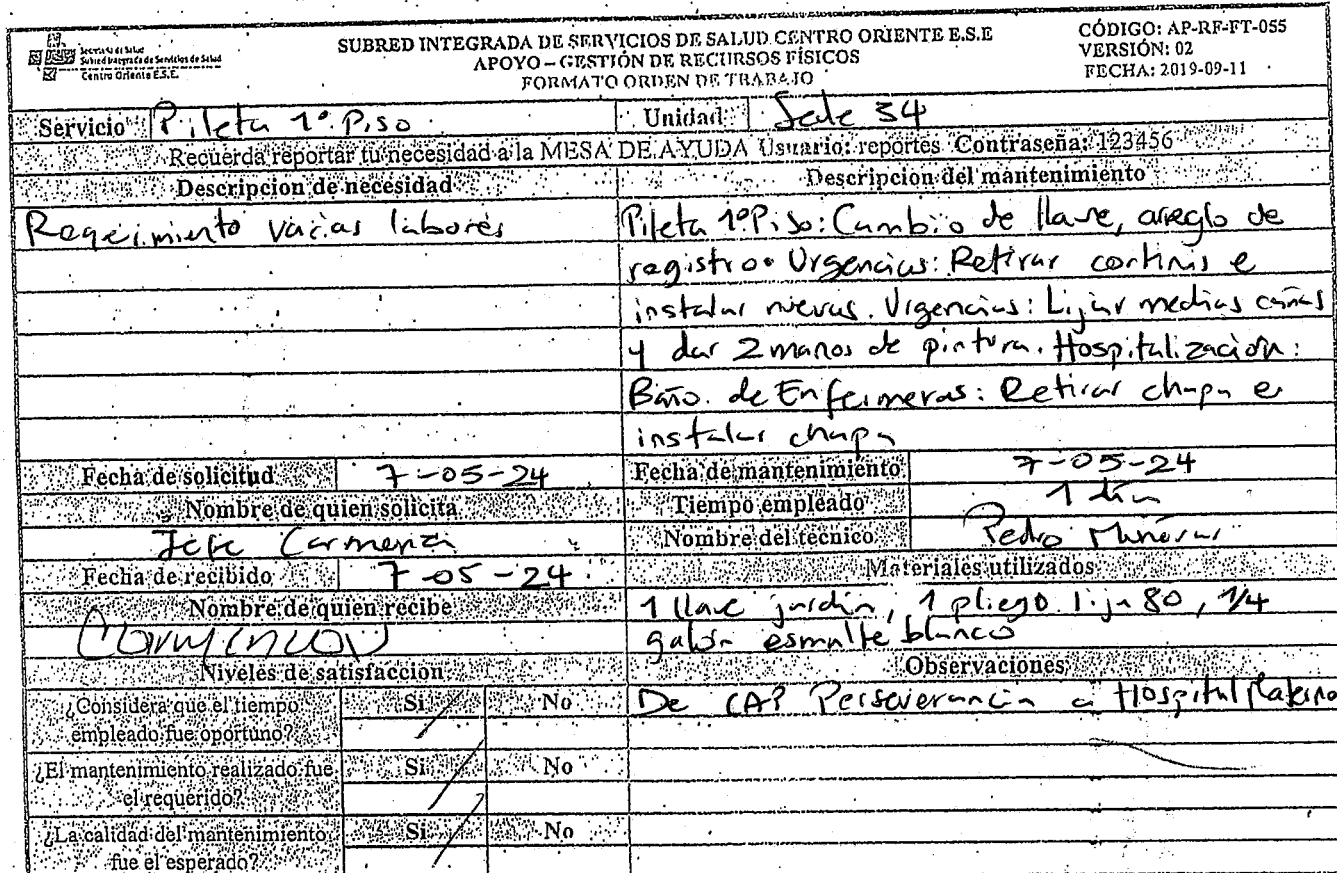 Secretaría de Salud
Subred Integrada de Servicios de Salud
Centro Oriente E.S.E.
SUBRED INTEGRADA DE SERVICIOS DE SALUD CENTRO ORIENTE E.S.E
APOYO – GESTIÓN DE RECURSOS FÍSICOS
FORMATO ORDEN DE TRABAJO
CÓDIGO: AP-RF-FT-055
VERSIÓN: 02
FECHA: 2019-09-11
Servicio Pileta 1º Piso Unidad Sede 34
Recuerda reportar tu necesidad a la MESA DE AYUDA Usuario: reportes Contraseña: 123456
Descripcion de necesidad
Reqeimiento varias labores
Descripcion del mantenimiento
Pileta 1º Piso: Cambio de llave, areglo de
registro. Urgencias: Retirar cortinas e
instalar nuevas. Urgencias: Lijar medias cañas
y dar 2 manos de pintura. Hospitalización:
Baño de Enfermeras: Retirar chapa e
instalar chapa
Fecha de solicitud 7-05-24
Nombre de quien solicita
Jefe Carmenza
Fecha de recibido 7-05-24
Nombre de quien recibe
Fecha de mantenimiento 7-05-24
Tiempo empleado 1 día
Nombre del tecnico Pedro
Materiales utilizados
1 llave jardin, 1 pliego lija 80, 1/4
galón esmalte blanco
Niveles de satisfaccion
¿Considera que el tiempo
empleado fue oportuno? Si No
¿El mantenimiento realizado fue
el requerido? Si No
¿La calidad del mantenimiento
fue el esperado? Si No
Observaciones
De CAP Perseverancia a Hospital Materno